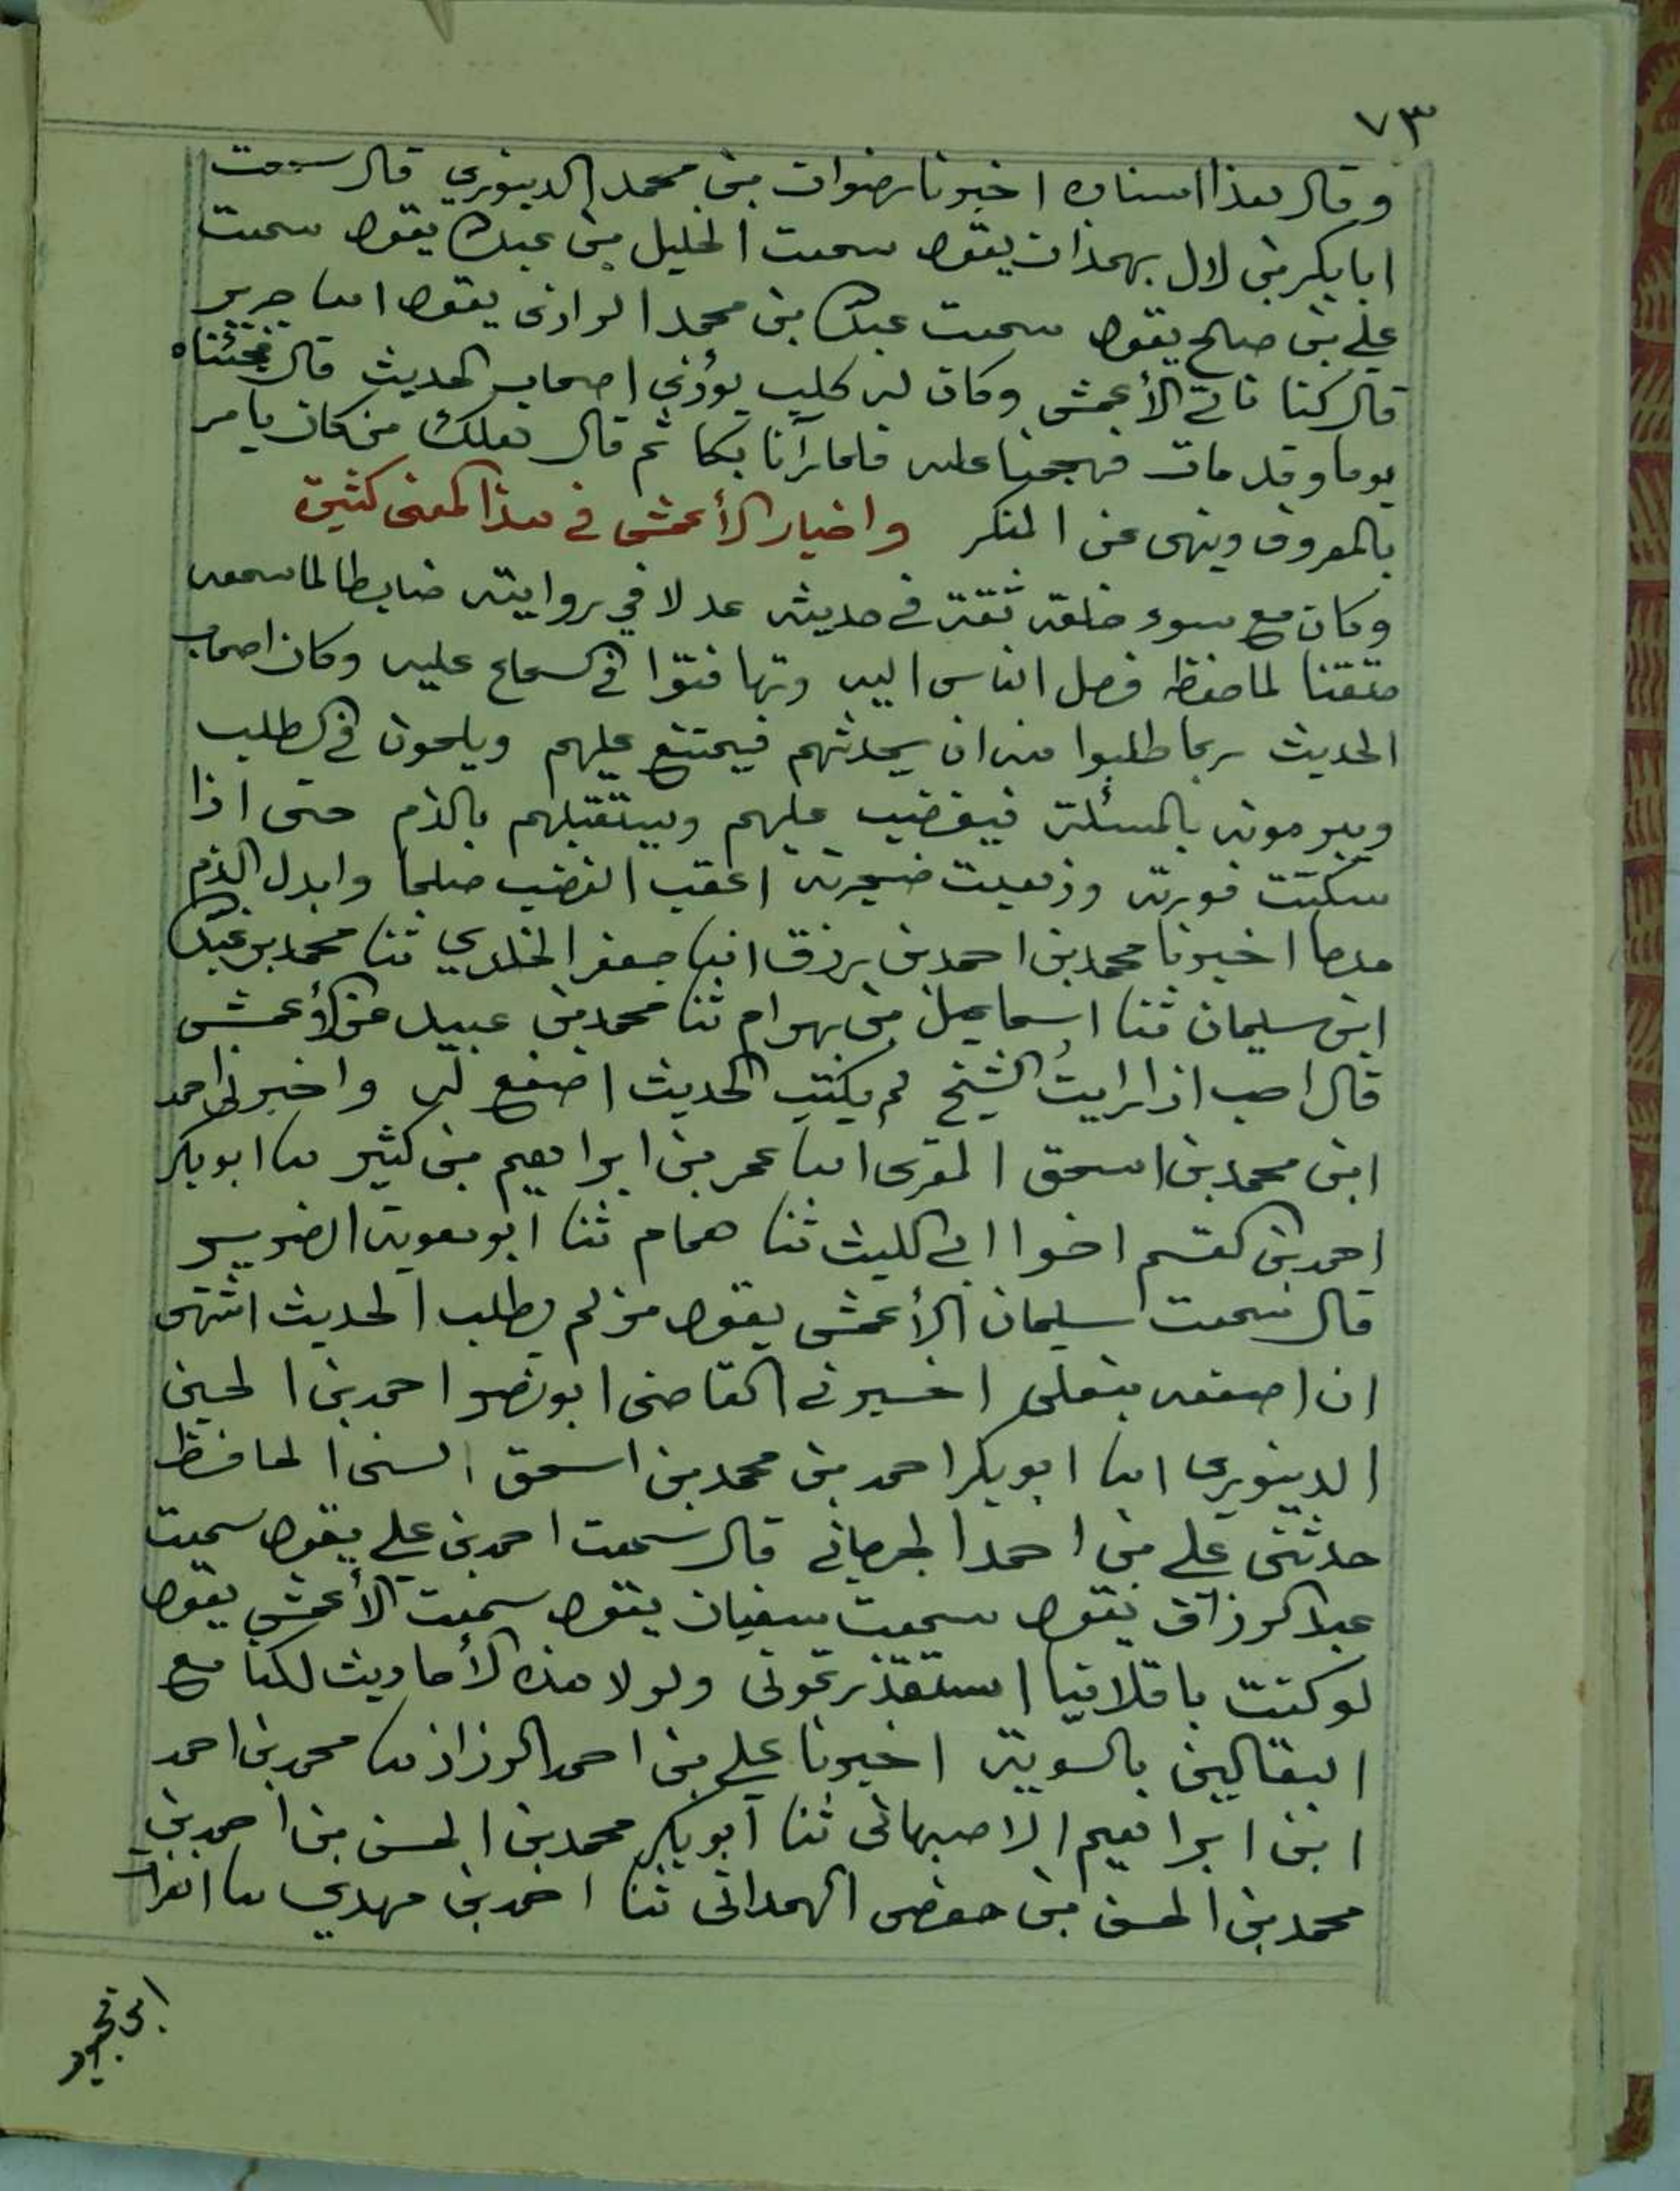 ٧٣
وقال هذا اسناده اخبرنا رضوان بن محمد الدينوري قال سمعت
ابا بكر بن لال بهمذان يقول سمعت الخليل بن عبد الله يقول سمعت
علي بن صالح يقول سمعت عبد الله بن محمد الرازي يقول انبا جرير
قال كنا ناتي الأعمش وكان له كلب يوذي اصحاب الحديث قال فجئناه
يوما وقد مات فهجمنا عليه فلما رآنا بكا ثم قال هلك من كان يامر
بالمعروف وينهى عن المنكر واخبار الأعمش في هذا المعنى كثيرة
وكان مع سوء خلقه ثقة في حديثه عدلا في روايته ضابطا لما سمعه
متقنا لما حفظه فرحل الناس اليه وتهافتوا في السماع عليه وكان اصحاب
الحديث ربما طلبوا منه ان يحدثهم فيمتنع عليهم ويلحون في الطلب
ويبرمونه بالمسئلة فيغضب عليهم ويستقبلهم بالذم حتى اذا
سكتت فورته وذهبت ضجرته اعقب الغضب صلحا وابدل الذم
مدحا اخبرنا محمد بن احمد بن رزق انبا جعفر الخلدي ثنا محمد بن عبد الله
ابن سليمان ثنا اسماعيل بن بهرام ثنا محمد بن عبيد عن الأعمش
قال احب اذا رايت الشيخ لم يكتب الحديث اصفع له واخبرني احمد
ابن محمد بن اسحق المقرى انبا عمر بن ابراهيم بن كثير نبا ابو بكر
احمد بن القسم اخوا ابي الليث ثنا همام ثنا ابو معوية الضرير
قال سمعت سليمان الأعمش يقول من لم يطلب الحديث اشتهى
ان اصفعه بنعلى اخبرني القاضى ابو نصر احمد بن الحسين
الدينورى انبا ابو بكر احمد بن محمد بن اسحق السنى الحافظ
حدثنى علي بن احمد الجرجاني قال سمعت احمد بن علي يقول سمعت
عبد الرزاق يقول سمعت سفيان يقول سمعت الأعمش يقول
لو كنت باقلانيا استقذرتمونى ولولا هذه الأحاديث لكنا مع
البقالين بالسوية اخبرنا علي بن احمد الرزاز نبا محمد بن احمد
ابن ابراهيم الاصبهانى ثنا ابو بكر محمد بن الحسن بن احمد بن
محمد بن الحسن بن حفص الهمدانى ثنا احمد بن مهدي نبا الفرات